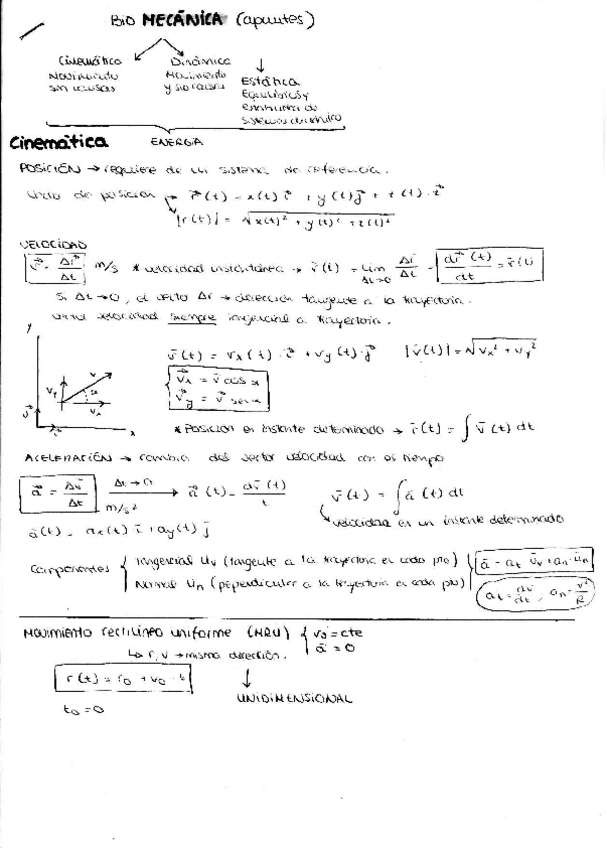 BIO MECÁNICA (apuntes)
Cinemática Dinámica
Movimiento Movimiento Estática
sin causas y sus causas Equilibrios y
estructura de
sistemas
ENERGÍA
Cinemática
POSICIÓN → requiere de un sistema de referencia.
Vector de posición → r⃗(t) = x(t) i⃗ + y(t) j⃗ + z(t)·k⃗
|r(t)| = √x(t)² + y(t)² + z(t)²
VELOCIDAD
v⃗ = Δr⃗/Δt m/s * velocidad instantánea → v⃗(t) = lim Δt→0 Δr⃗/Δt = dr⃗(t)/dt = v⃗(t)
Si Δt→0, el vector Δr → dirección tangente a la trayectoria.
Vector velocidad siempre tangencial a trayectoria.
y
v⃗(t) = vx(t)·i⃗ + vy(t)·j⃗ |v⃗(t)| = √vx² + vy²
v⃗x = v⃗ cos α
v⃗y = v⃗ sen α
vy v α vx
x
* Posición en instante determinado → r⃗(t) = ∫ v⃗(t) dt
ACELERACIÓN → cambia del vector velocidad con el tiempo
a⃗ = Δv⃗/Δt Δt→0 m/s² → a⃗(t) = dv⃗(t)/t v⃗(t) = ∫ a⃗(t) dt
velocidad en un instante determinado
a⃗(t) = ax(t) i⃗ + ay(t) j⃗
Componentes { Tangencial Uv (tangente a la trayectoria en cada pto)
Normal Un (perpendicular a la trayectoria en cada pto)
a⃗ = at·u⃗v + an·u⃗n
at = dv/dt, an = v²/R
Movimiento rectilíneo uniforme (MRU) { v0 = cte
a⃗ = 0
↳ r, v → misma dirección.
r(t) = r0 + v0·t
↓
UNIDIMENSIONAL
t0 = 0